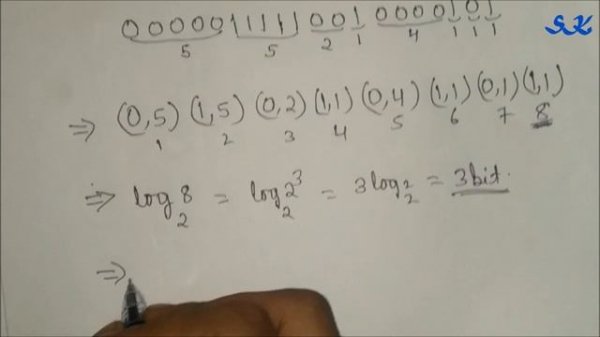 0000011111001000010 1
SK
5 5 2 1 4 1 1 1
⇒ (0,5) (1,5) (0,2) (1,1) (0,4) (1,1) (0,1) (1,1)
1 2 3 4 5 6 7 8
⇒ log₂8 = log₂2³ = 3log₂2 = 3bit.
⇒